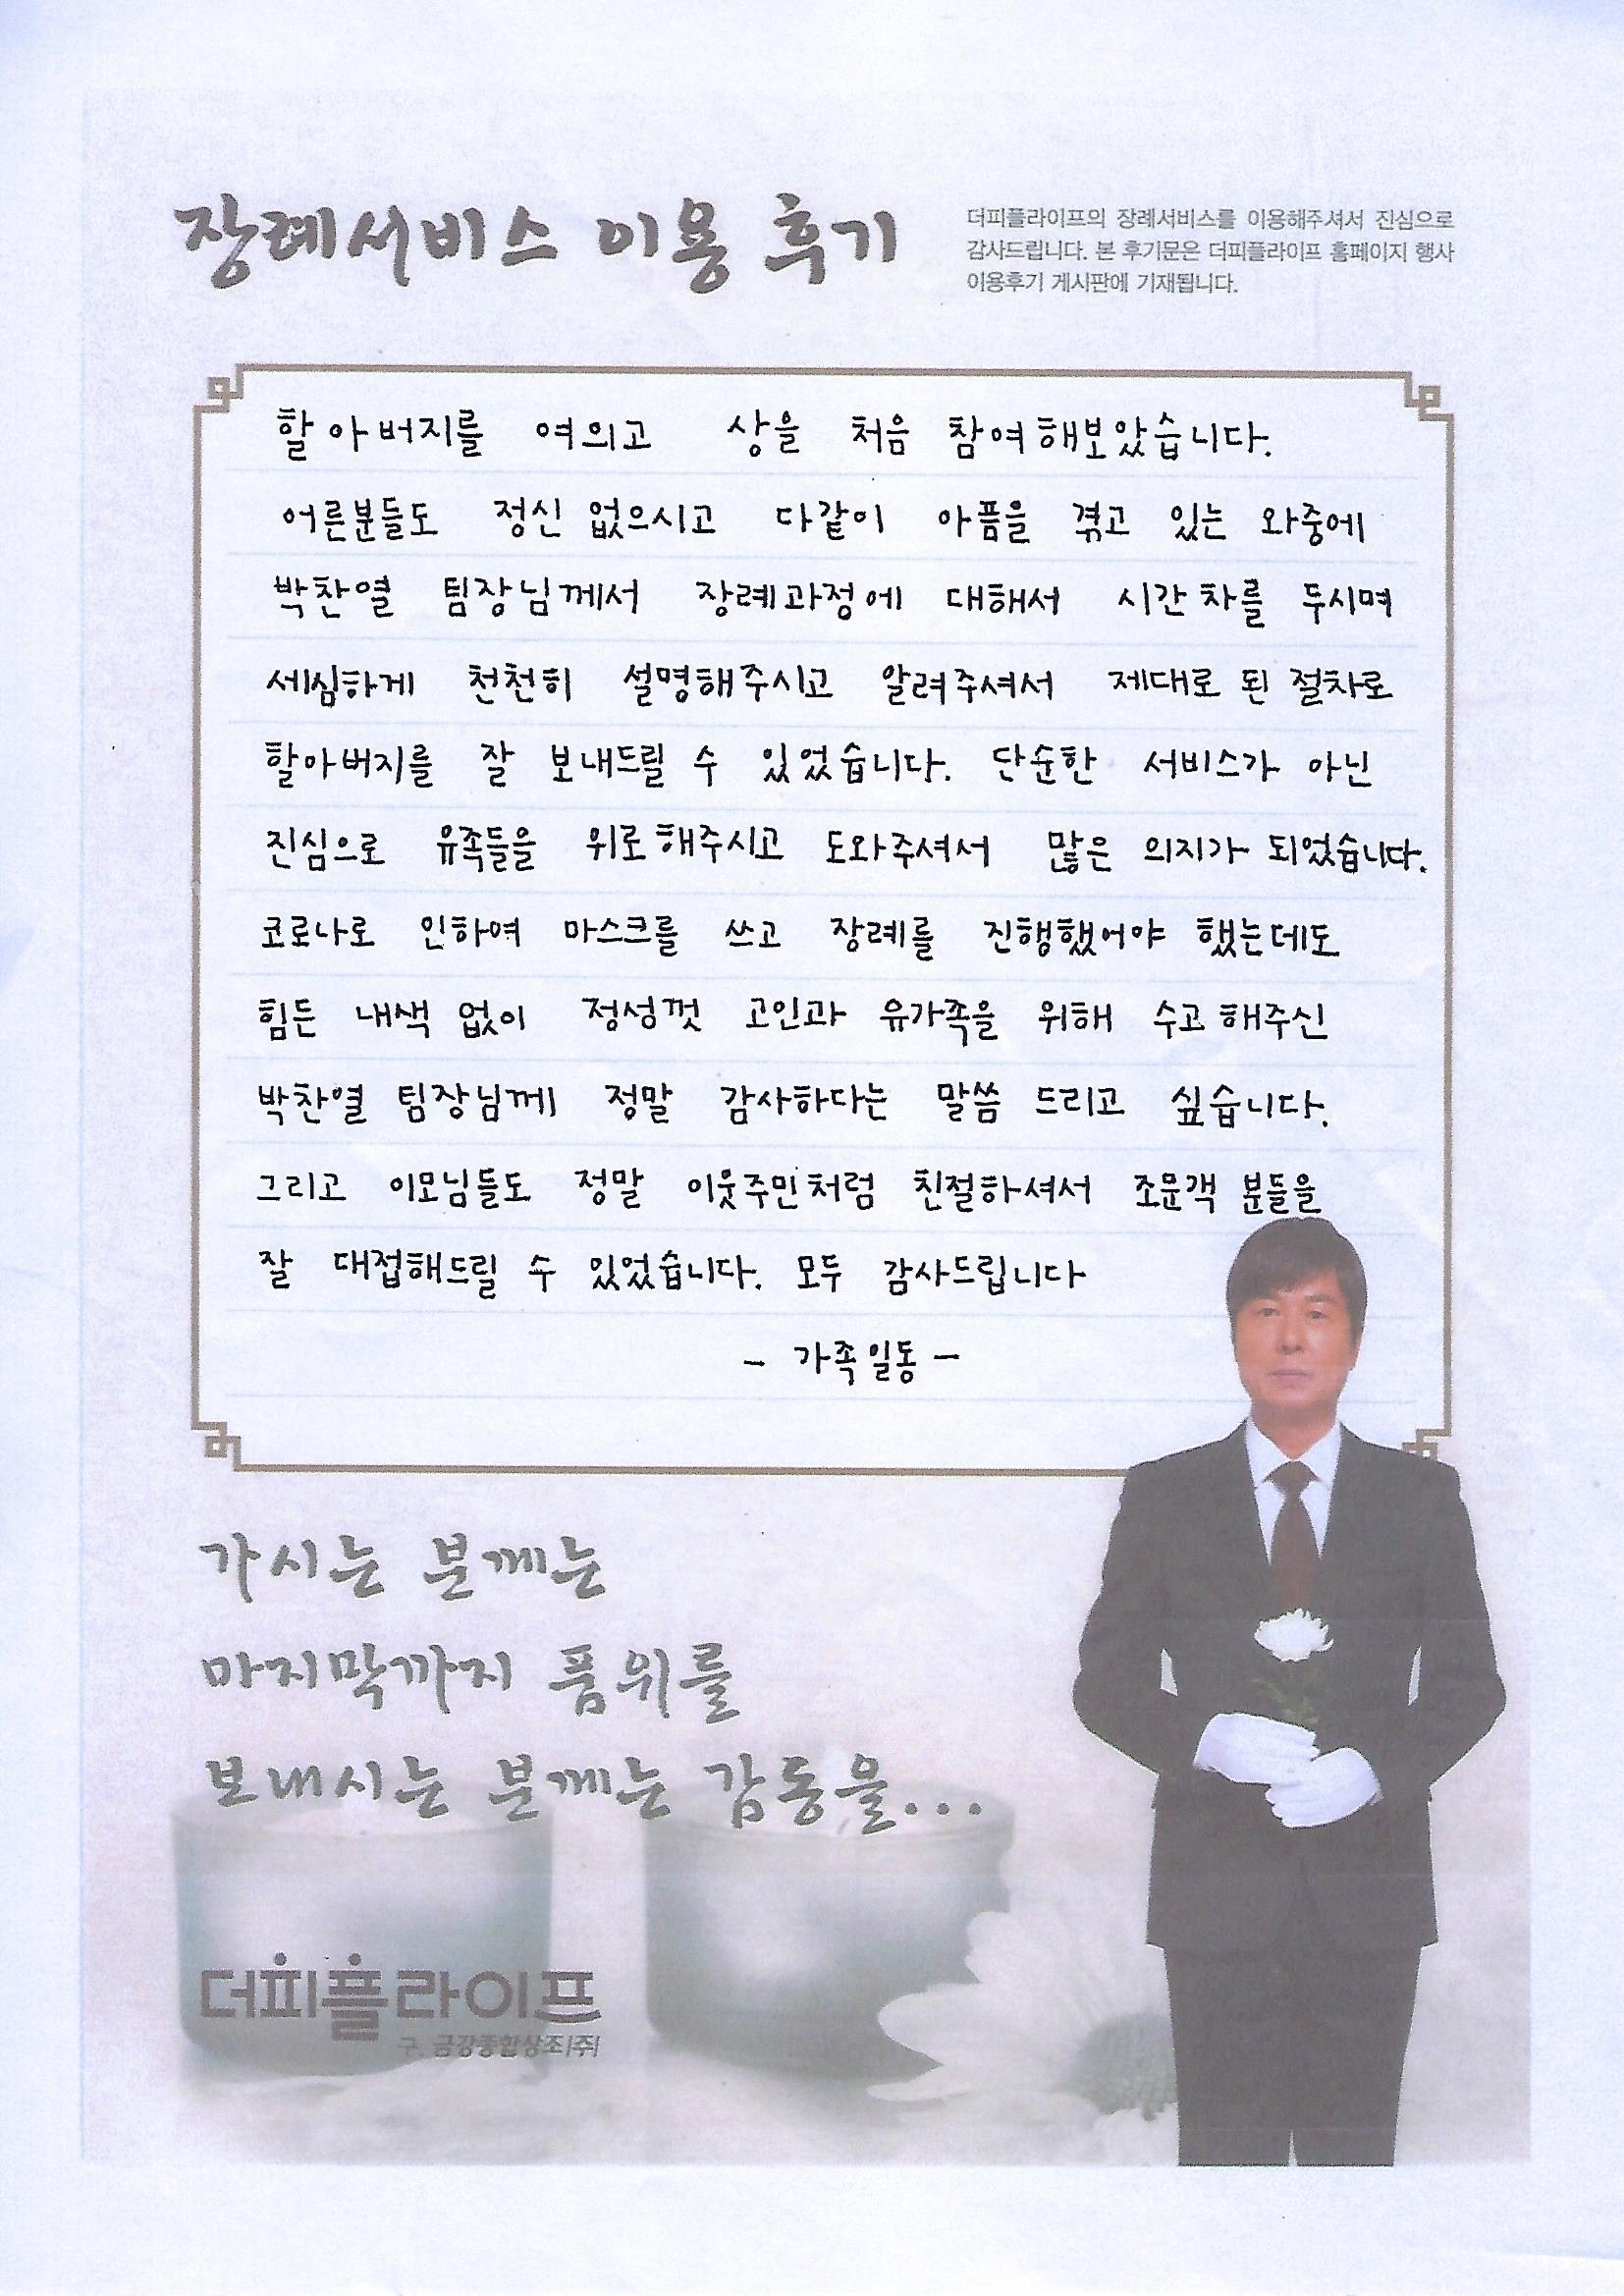 장례서비스 이용 후기
더피플라이프의 장례서비스를 이용해주셔서 진심으로
감사드립니다. 본 후기문은 더피플라이프 홈페이지 행사
이용후기 게시판에 기재됩니다.
할아버지를 여의고 상을 처음 참여해보았습니다.
어른분들도 정신 없으시고 다같이 아픔을 겪고 있는 와중에
박찬열 팀장님께서 장례과정에 대해서 시간차를 두시며
세심하게 천천히 설명해주시고 알려주셔서 제대로 된 절차로
할아버지를 잘 보내드릴 수 있었습니다. 단순한 서비스가 아닌
진심으로 유족들을 위로해주시고 도와주셔서 많은 의지가 되었습니다.
코로나로 인하여 마스크를 쓰고 장례를 진행했어야 했는데도
힘든 내색 없이 정성껏 고인과 유가족을 위해 수고해주신
박찬열 팀장님께 정말 감사하다는 말씀 드리고 싶습니다.
그리고 이모님들도 정말 이웃주민처럼 친절하셔서 조문객 분들을
잘 대접해드릴 수 있었습니다. 모두 감사드립니다
- 가족일동 -
가시는 분께는
마지막까지 품위를
보내시는 분께는 감동을...
더피플라이프
구. 금강종합상조(주)